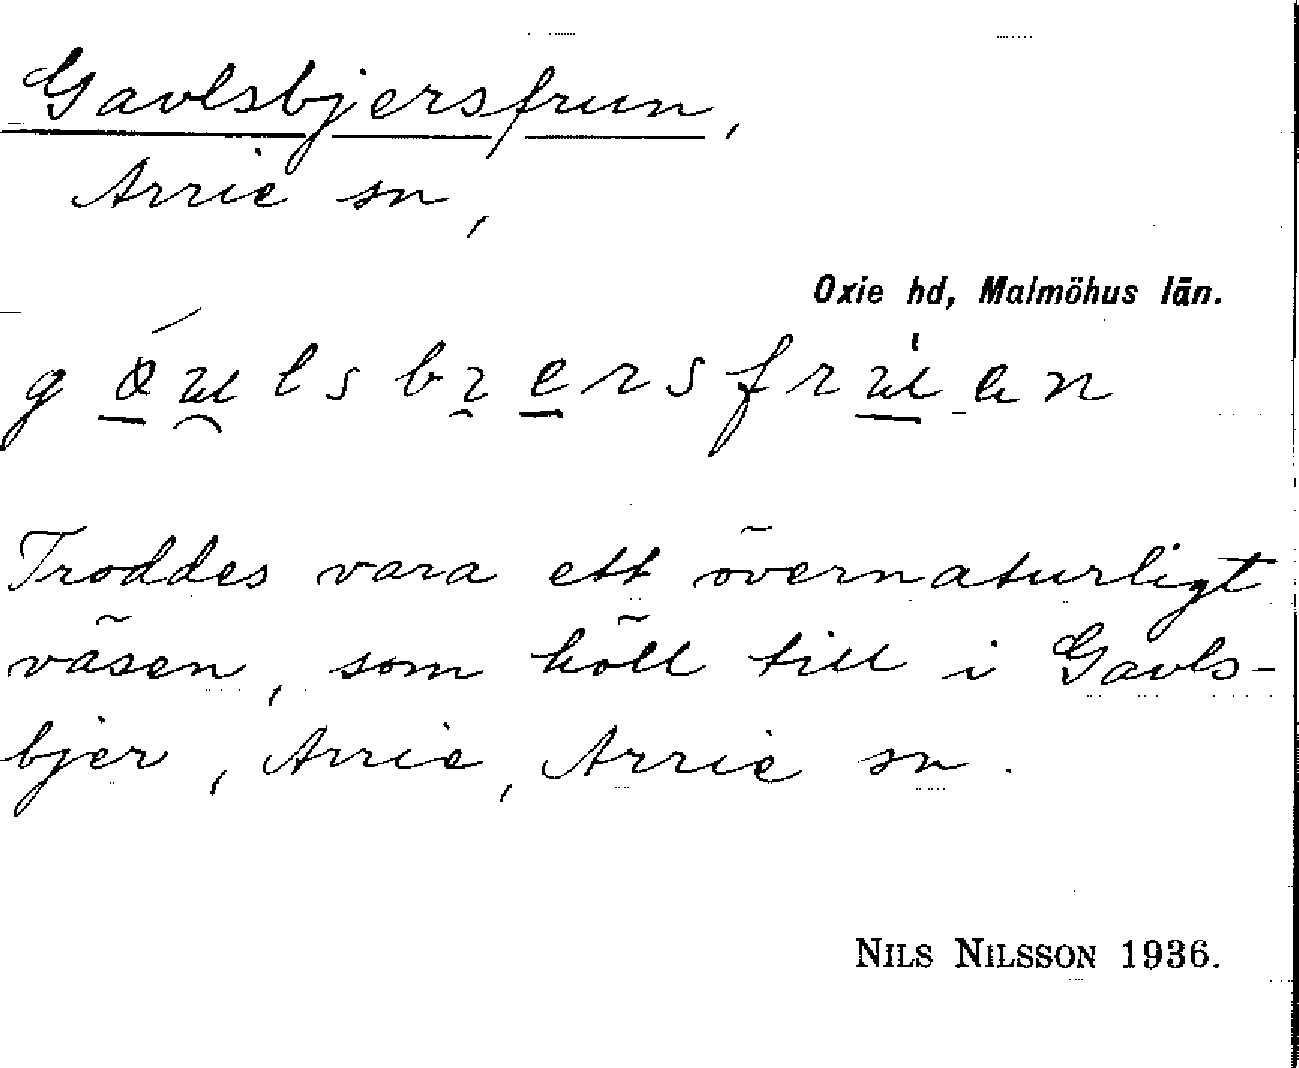 Gavlsbjersfrun,
Arrie sn,
Oxie hd, Malmöhus län.
Troddes vara ett övernaturligt
väsen, som höll till i Gavls-
bjer, Arrie, Arrie sn.
NILS NILSSON 1936.